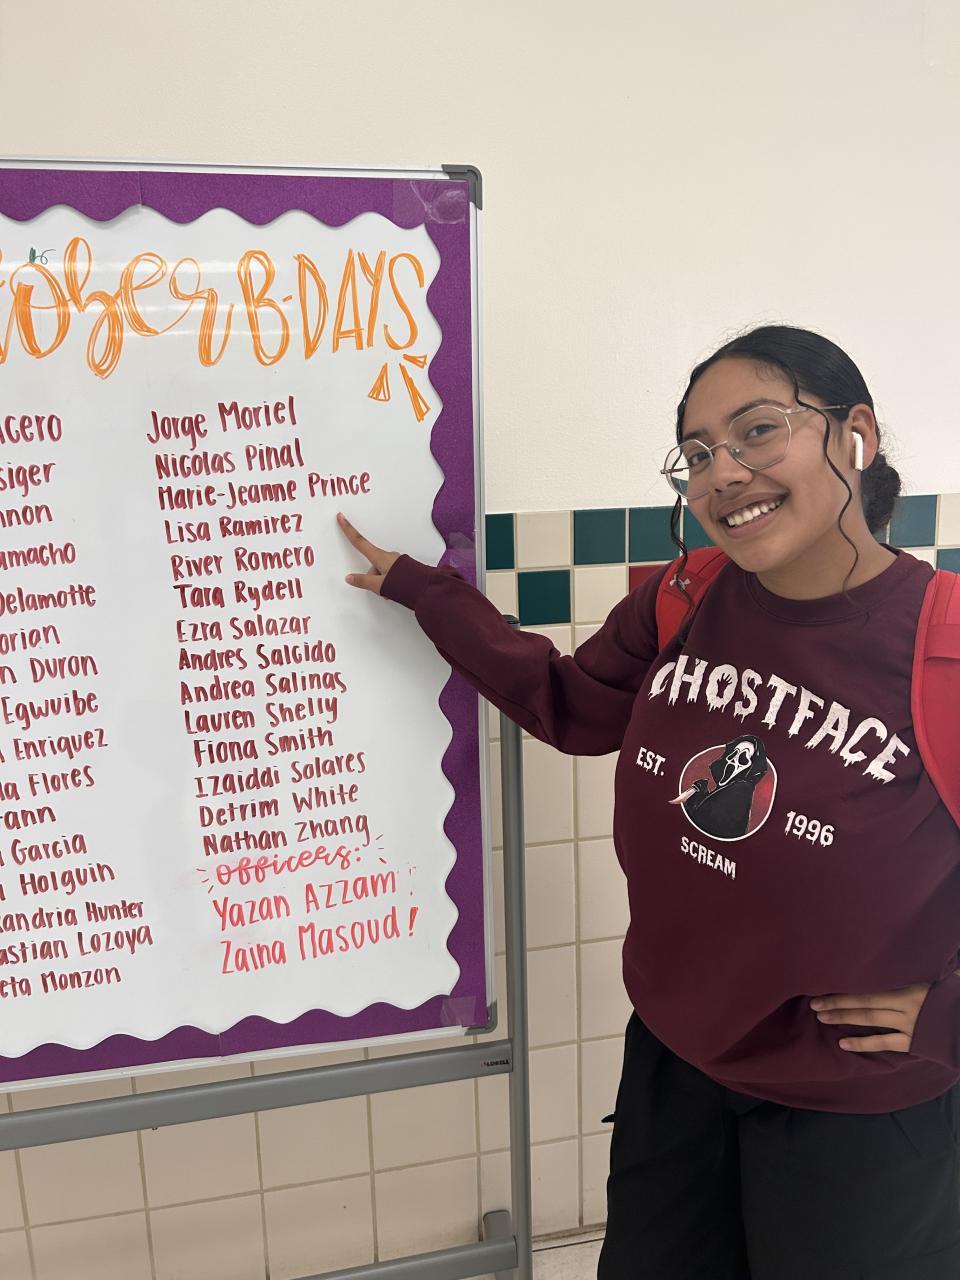 tober B-DAYS
Acero
siger
nnon
amacho
Delamotte
orian
n Duron
Egwuibe
Enriquez
la Flores
rann
Garcia
Holguin
xandria Hunter
astian Lozoya
eta Monzon
Jorge Moriel
Nicolas Pinal
Marie-Jeanne Prince
Lisa Ramirez
River Romero
Tara Rydell
Ezra Salazar
Andres Salcido
Andrea Salinas
Lauren Shelly
Fiona Smith
Izaiddi Solares
Detrim White
Nathan Zhang
officers:
Yazan Azzam!
Zaina Masoud!
GHOSTFACE
EST.
1996
SCREAM